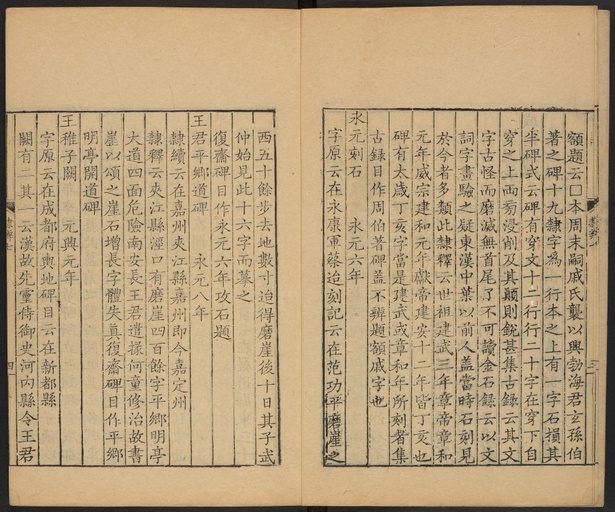 額題云□本周末嗣戚氏襲以興勃海君玄孫伯
著之碑十九隸字為一行本之上有一字石損其
半碑式云碑有穿文十二行行二十字在穿下自
穿之上兩旁浸削及其顛則銳甚集古錄云其文
字古怪而磨滅無首尾了不可讀金石錄云以文
詞字畫驗之疑東漢中葉以前人蓋當時石刻見
於今者多類此隸釋云世祖建武三年章帝章和
元年威宗建和元年獻帝建安十二年皆丁亥也
碑有太歲丁亥字當是建武或章和年所刻者集
古錄目作周伯著碑蓋不辨題額戚字也
永元刻石 永元六年
字原云在永康軍蔡迨刻記云在范功平磨崖之
西五十餘步去地數寸迨得磨崖後十日其子武
仲始見此十六字而摹之
復齋碑目作永元六年攻石題
王君平鄉道碑 永元八年
隸續云在嘉州夾江縣嘉州即今嘉定州
隸釋云夾江縣涇口有磨崖四百餘字平鄉明亭
大道四面危險南安長王君遣掾何童修治故書
崖以頌之崖石增長字體失真復齋碑目作平鄉
明亭開道碑
王稚子闕 元興元年
字原云在成都府輿地碑目云在新都縣
闕有二其一云漢故先靈侍御史河內縣令王君